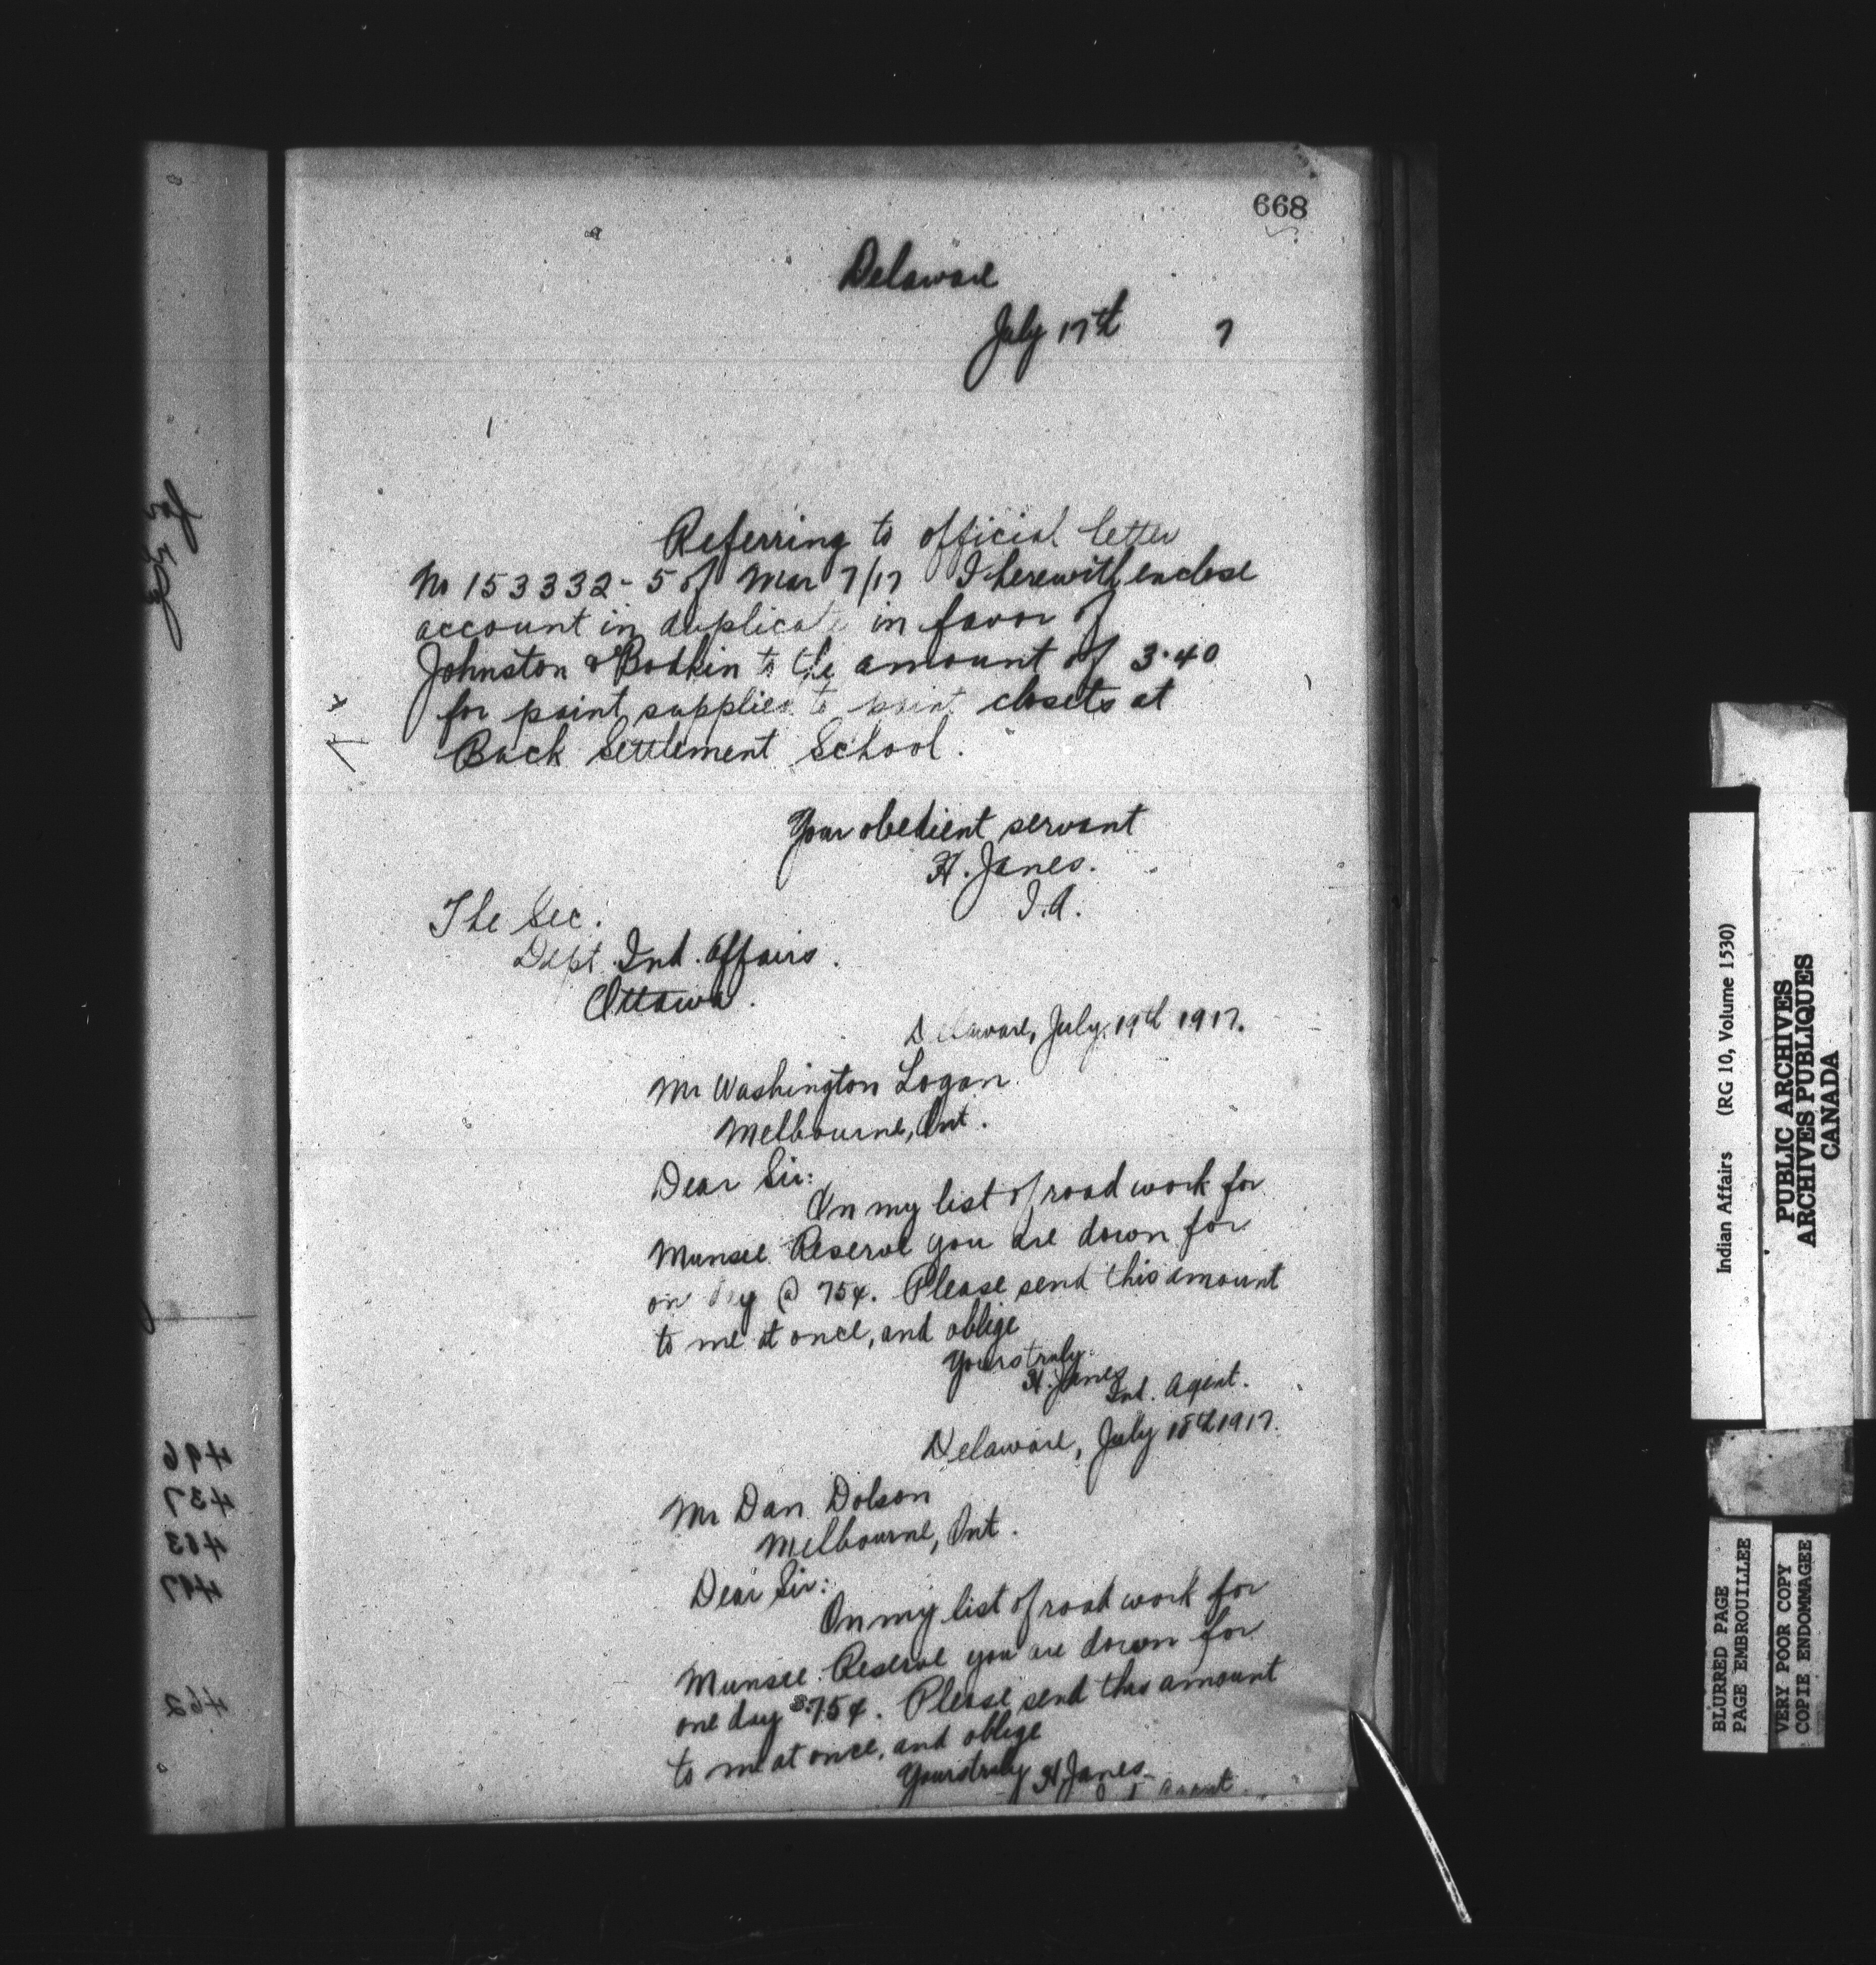 668
Delaware
July 17th 7
Referring to official letter
No 153332-5 of Mar 7/17 I herewith enclose
account in duplicate in favor of
Johnston & Bodkin to the amount of 3.40
for paint supplied to paint closets at
Back Settlement School.
Your obedient servant
H. Janes.
I.A.
The Sec.
Dept. Ind. Affairs.
Ottawa.
Delaware, July 19th 1917.
Mr Washington Logan
Melbourne, Ont.
Dear Sir:
On my list of road work for
Munsee Reserve you are down for
on day @ 75¢. Please send this amount
to me at once, and oblige
Yours truly
H. Janes
Ind. Agent.
Delaware, July 18th 1917.
Mr Dan Dolson
Melbourne, Ont.
Dear Sir:
On my list of road work for
Munsee Reserve you are down for
one day 75¢. Please send this amount
to me at once, and oblige
Yours truly H. Janes
Agent
496
437
463
497
462
Indian Affairs (RG 10, Volume 1530)
PUBLIC ARCHIVES
ARCHIVES PUBLIQUES
CANADA
BLURRED PAGE
PAGE EMBROUILLEE
VERY POOR COPY
COPIE ENDOMMAGEE